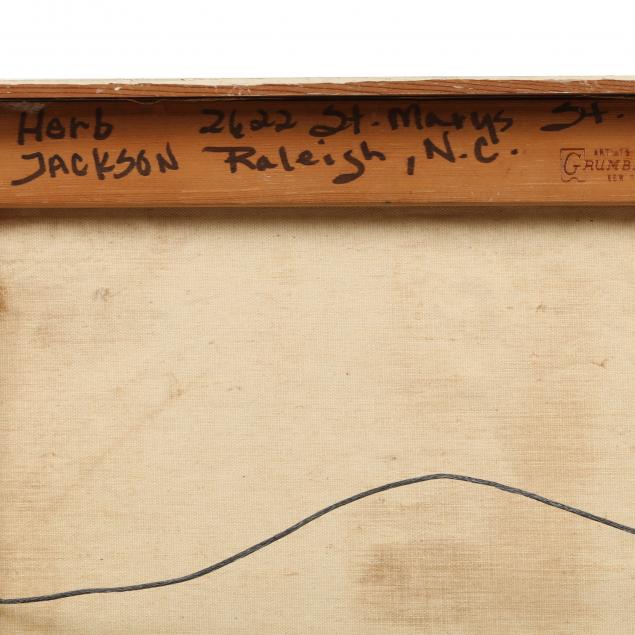 Herb 2622 St. Marys St.
JACKSON Raleigh, N.C.
ARTISTS
GRUMB
NEW